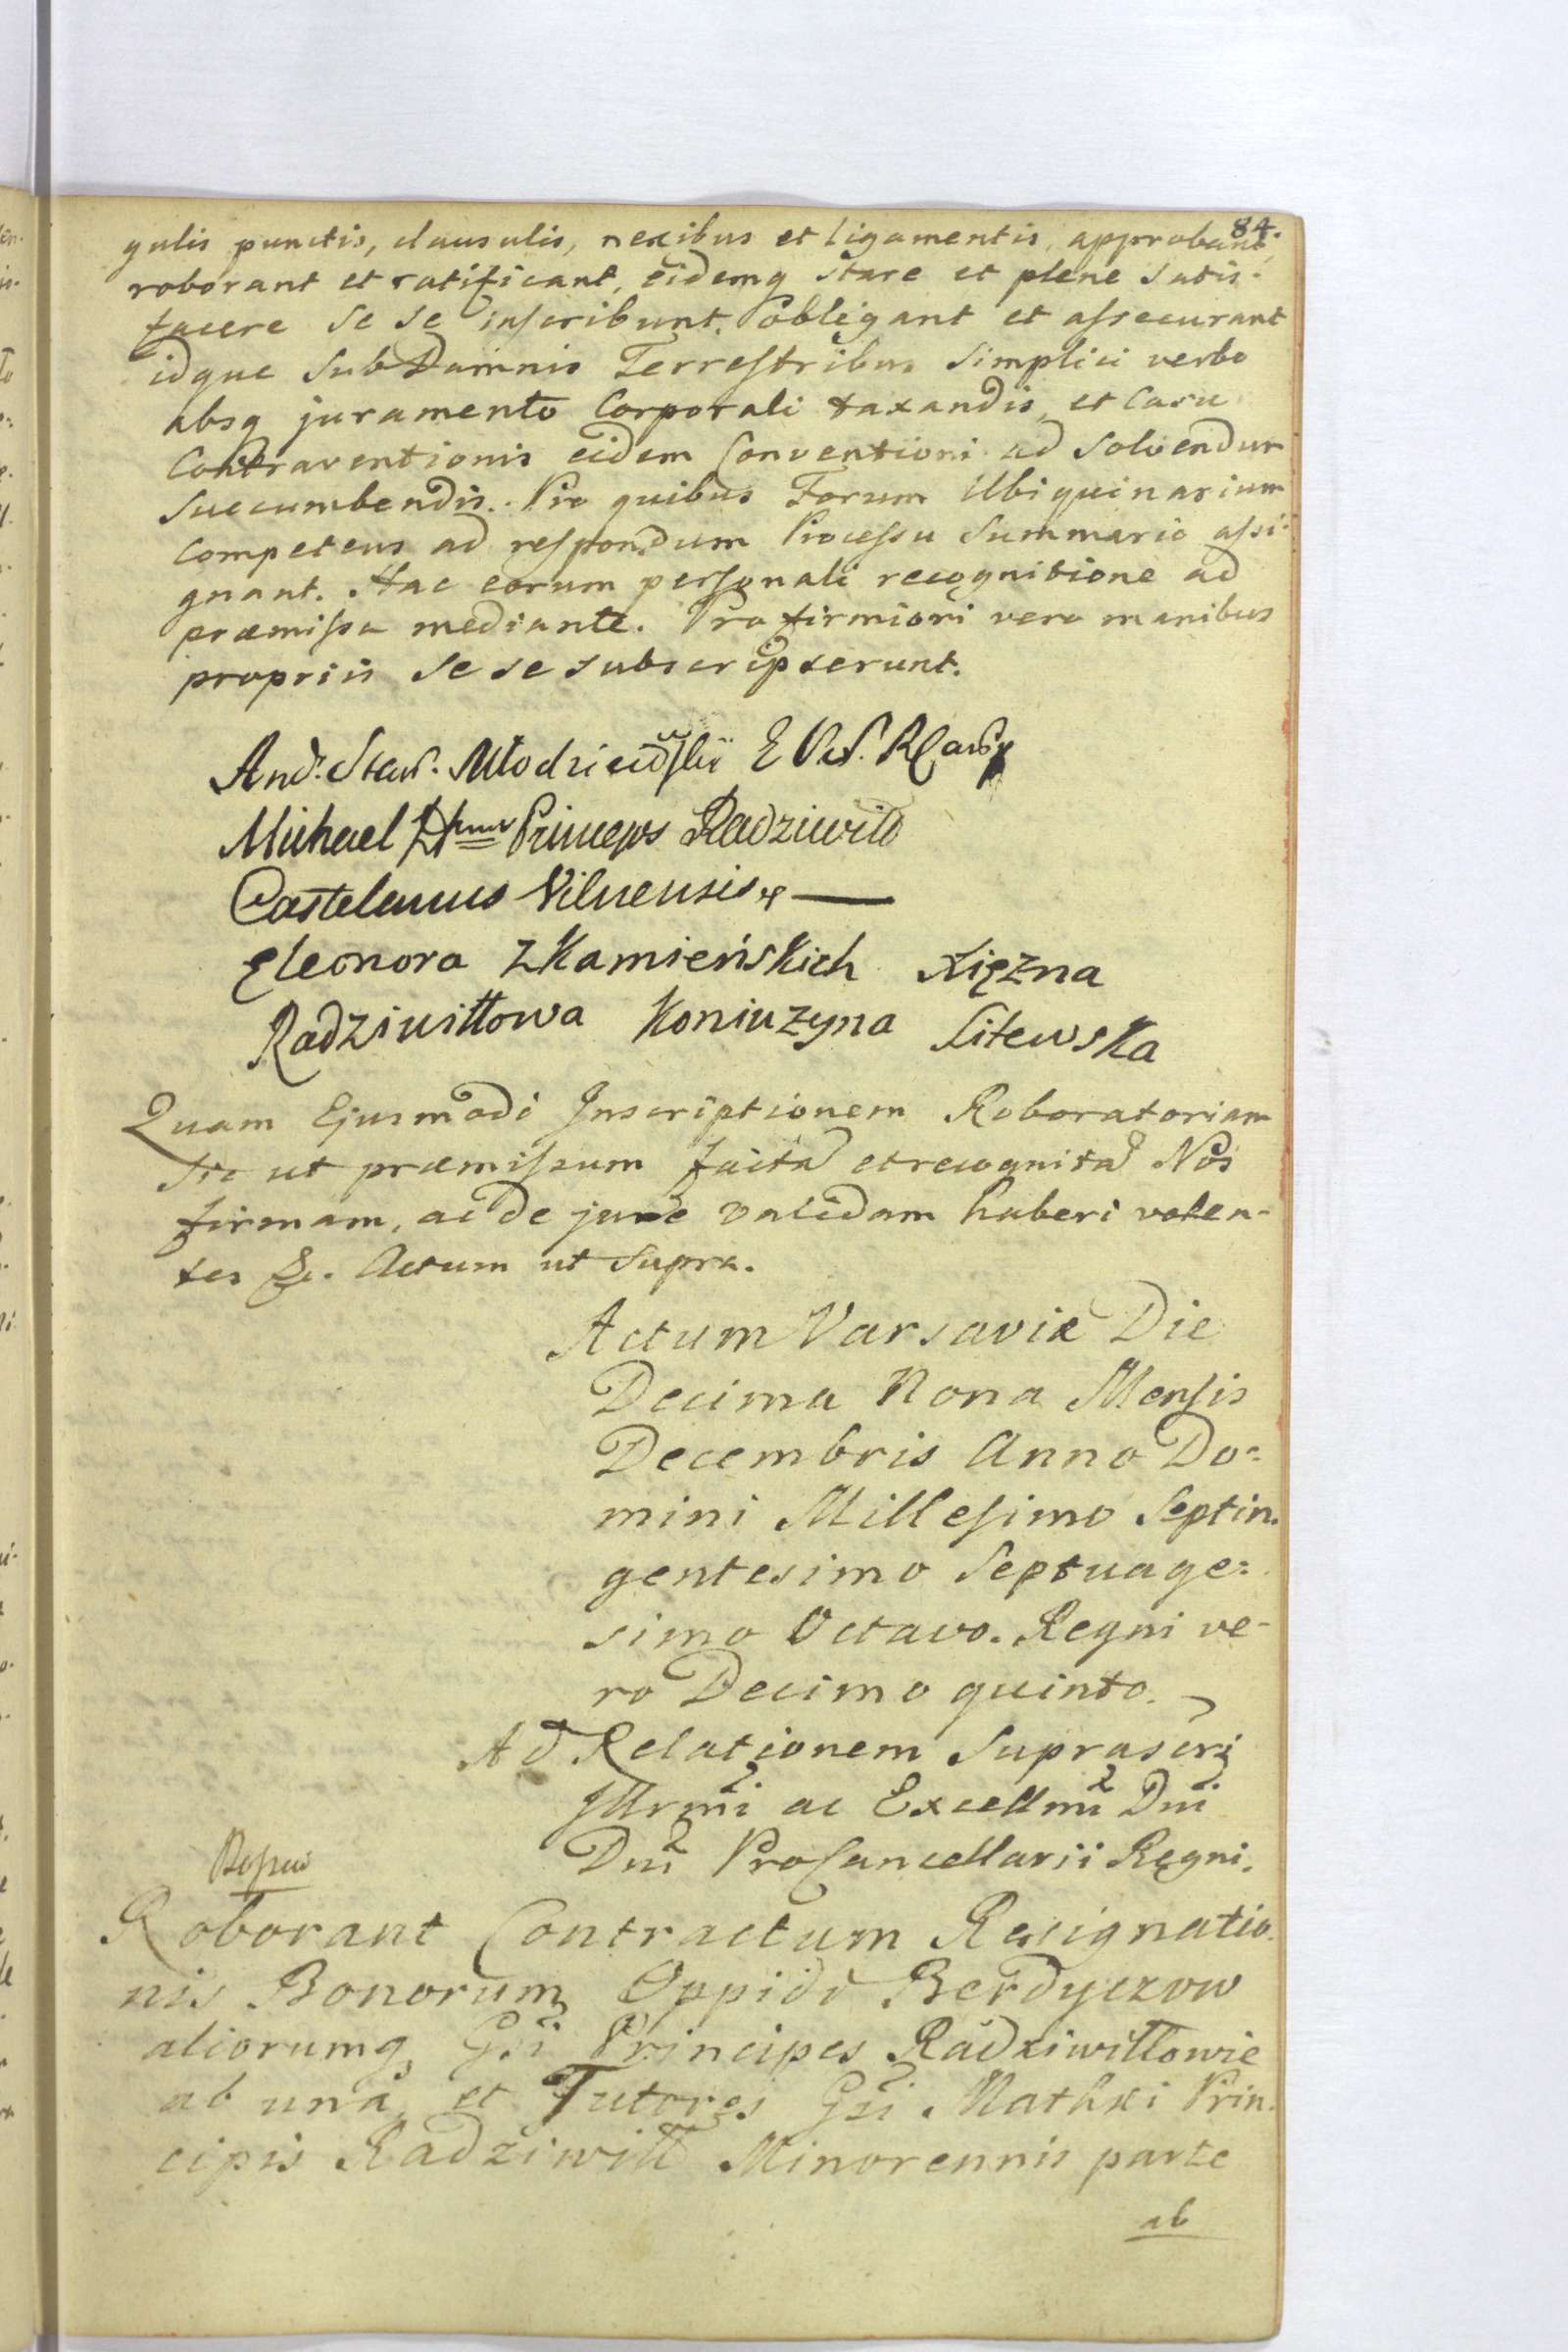 84.
gulis punctis, clausulis, nexibus et ligamentis, approbant
roborant et ratificant, eidemq stare et plene satis-
facere se se inscribunt, obligant et assecurant
idque sub Damnis Terrestribus simplici verbo
absq juramento Corporali taxandis, et Casu
Contraventionis eidem Conventioni ad solvendum
succumbendis. Pro quibus Forum Ubiquinarium
Competens ad respondum Processu Summario assi-
gnant. Hac eorum personali recognitione ad
præmissa mediante. Pro firmiori vero manibus
propriis se se subscripserunt.
And. Młodzieiowski E P
Michael Princeps Radziwiłł
Castelanus Vilnensis
Eleonora z Kamieńskich Xiężna
Radziwiłłowa Koniuzyna Litewska
Quam Ejusmodi Inscriptionem Roboratoriam
sic ut præmissum facta et recognita Nos
firmam, ac de jure validam haberi volen-
tes &c. Actum ut Supra.
Actum Varsaviæ Die
Decima Nona Mensis
Decembris Anno Do=
mini Millesimo Septin.
gentesimo Septuage=
simo Octavo. Regni ve-
ro Decimo quinto.
Ad Relationem Suprascri
Illrmi ac Excellmi Dni
Dni ProCancellarii Regni.
Roborant Contractum Resignatio.
nis Bonorum Oppidi Berdyczow
aliorumq Gsi Principes Radziwiłłowie
ab una, et Tutores Gsi Mathæi Prin.
cipis Radziwiłł Minorennis parte
ab